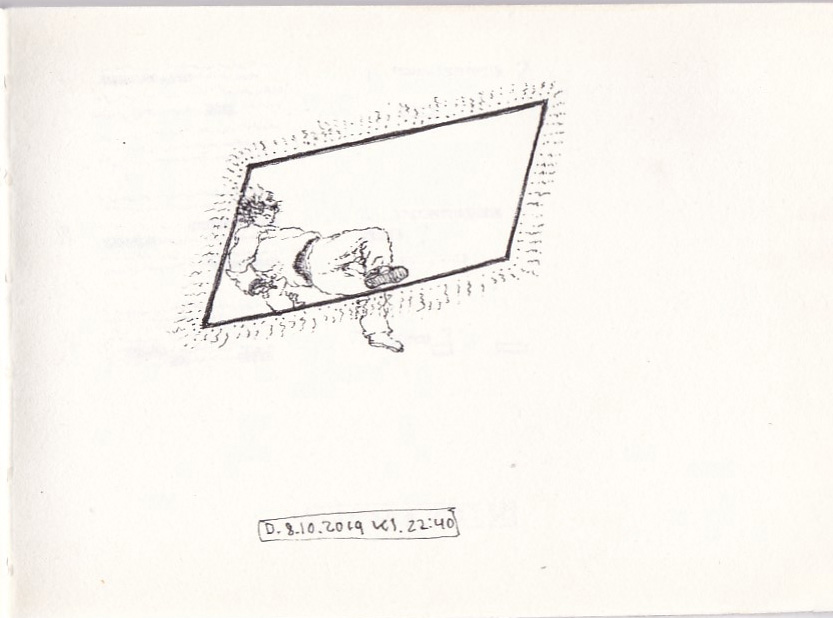 D. 8.10.2019 kl. 22:40